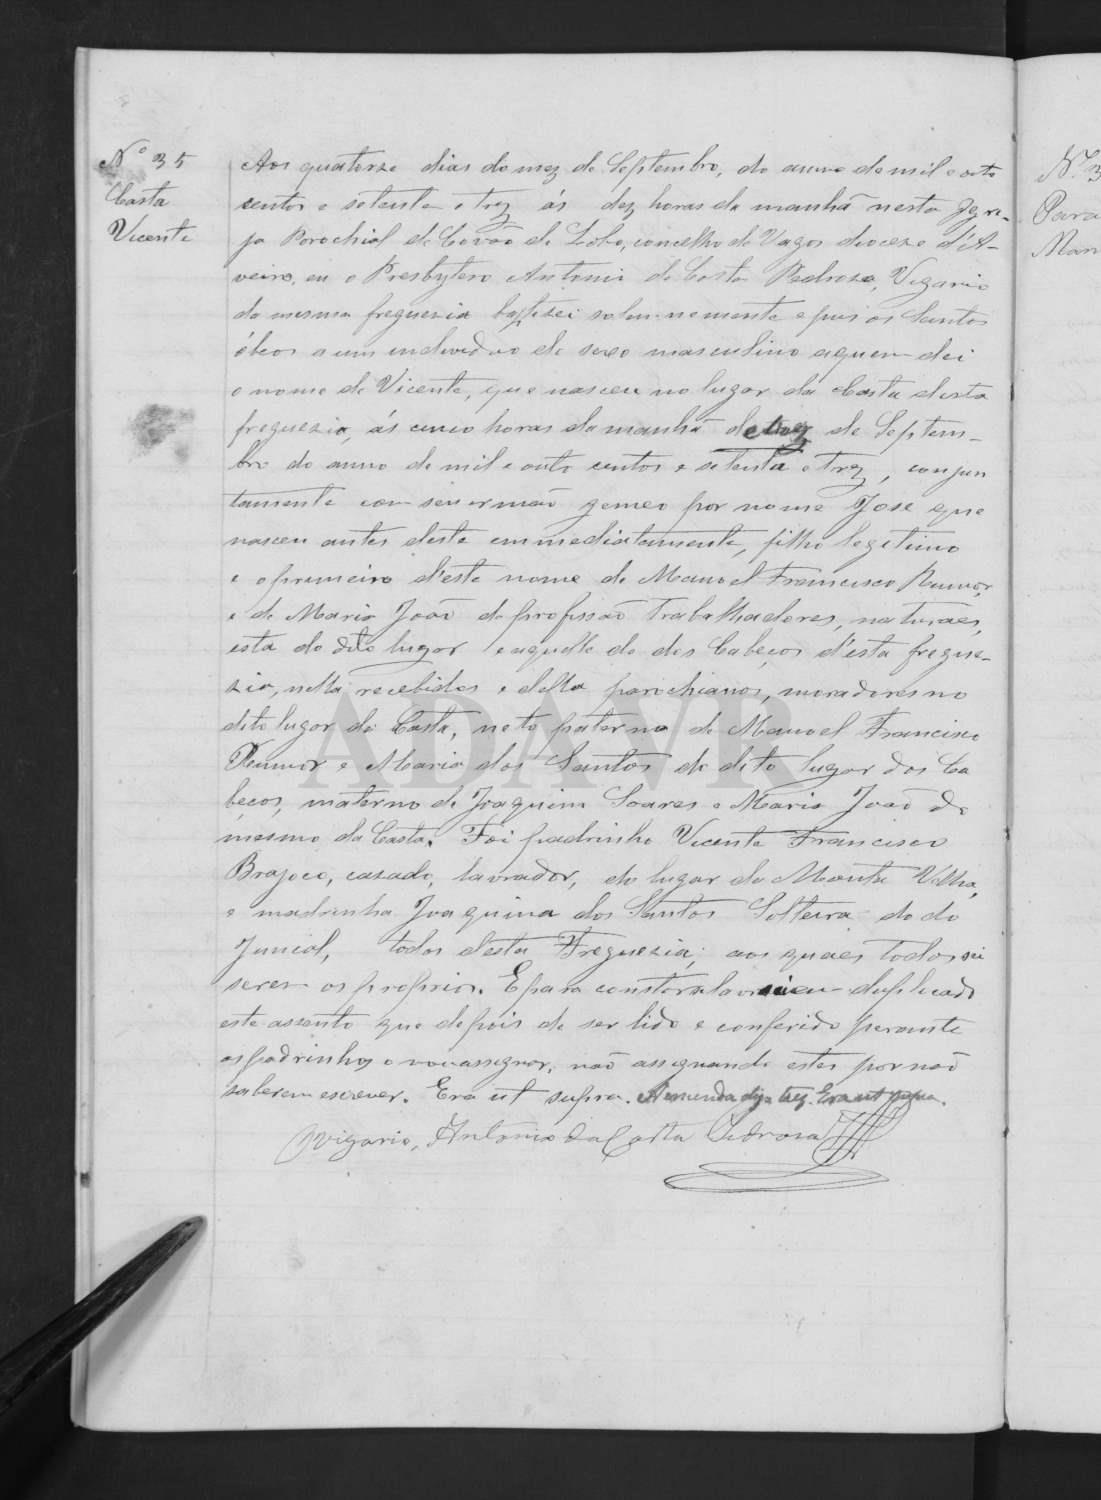 Nº 35
Casta
Vicente
Aos quatorze dias do mez de Septembro, do anno de mil e oito
centos e setenta e trez ás dez horas da manhã nesta Igre-
ja Parochial de Covão de Lobo, concelho de Vagos diocese d'A-
veiro, eu o Presbytero Antonio da Costa Pedrosa, Vigario
da mesma freguesia baptizei solemnemente e puz os Santos
óleos a um individuo do sexo masculino a quem dei
o nome de Vicente, que nasceu no lugar da Casta desta
freguesia, ás cinco horas da manhã de trez de Septem-
bro do anno de mil e outo centos e setenta e trez, conjun
tamente com seu ermão gemeo por nome Jose que
nasceu antes deste emmediatamente, filho legitimo
e o premeiro d'este nome de Manoel Francisco Rumor,
e de Maria João de profissão Trabalhadores, naturaes,
esta do dito lugar e aquelle do dos Cabeços d'esta fregue-
zia, nella recebidos e della parochianos, moradores no
dito lugar da Casta, neto paterno de Manoel Francisco
Rumor e Maria dos Santos do dito lugar dos Ca
beços, materno de Joaquim Soares e Maria João do
mesmo da Casta. Foi padrinho Vicente Francisco
Brajoco, casado, lavrador, do lugar da Manta Velha,
e madrinha Joaquina dos Santos Solteira do do
Juncal, todos desta Freguezia, aos quaes todos sei
serem os proprios. E para constar lavrei em duplicado
este assento que depois de ser lido e conferido perante
os padrinhos o vou assignar, não assignando estes por não
saberem escrever. Era ut supra. A emenda diz trez. Era ut supra.
O vigario, Antonio da Costa Pedrosa
ADAVR
Nº 3
Para
Man